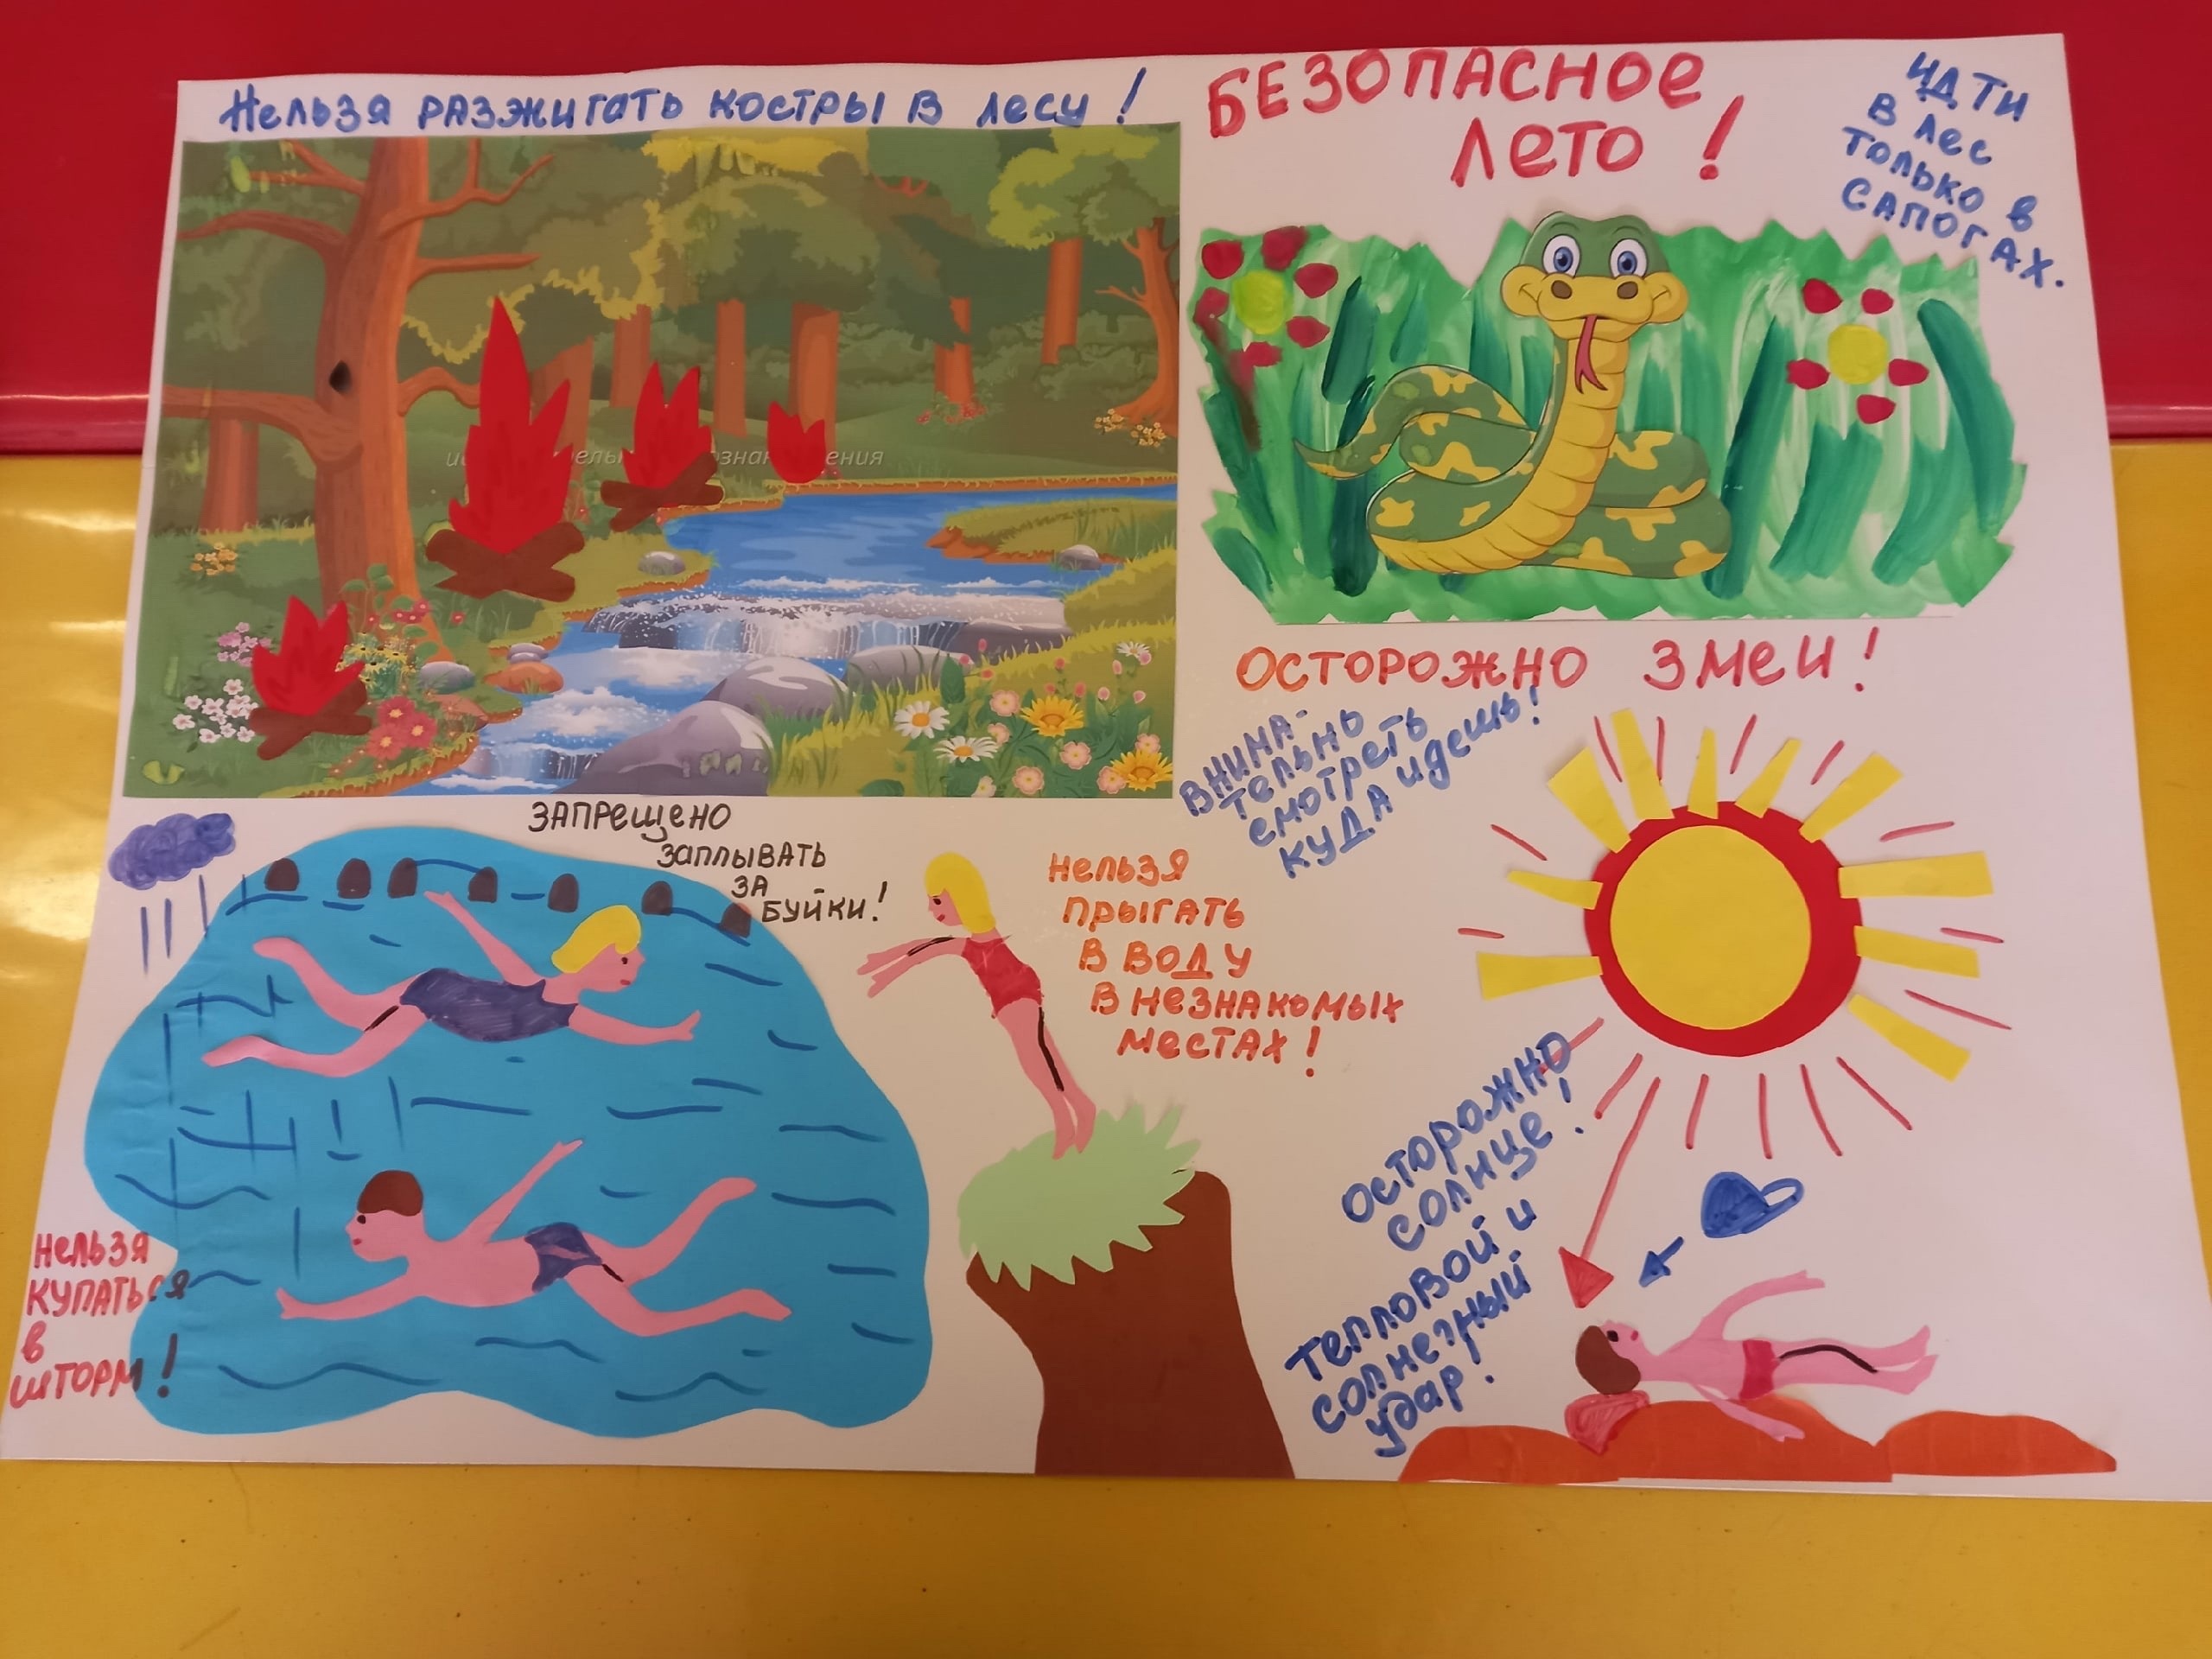 Нельзя разжигать костры в лесу!
БЕЗОПАСНОЕ
ЛЕТО!
ИДТИ
В ЛЕС
ТОЛЬКО В
САПОГАХ.
ОСТОРОЖНО ЗМЕИ!
ВНИМА-
ТЕЛЬНО
СМОТРЕТЬ
КУДА идешь!
ЗАПРЕЩЕНО
ЗАПЛЫВАТЬ
ЗА
БУЙКИ!
НЕЛЬЗЯ
ПРЫГАТЬ
В ВОДУ
В НЕЗНАКОМЫХ
МЕСТАХ!
НЕЛЬЗЯ
КУПАТЬСЯ
В
ШТОРМ!
ОСТОРОЖНО
СОЛНЦЕ!
ТЕПЛОВОЙ И
СОЛНЕЧНЫЙ
УДАР!